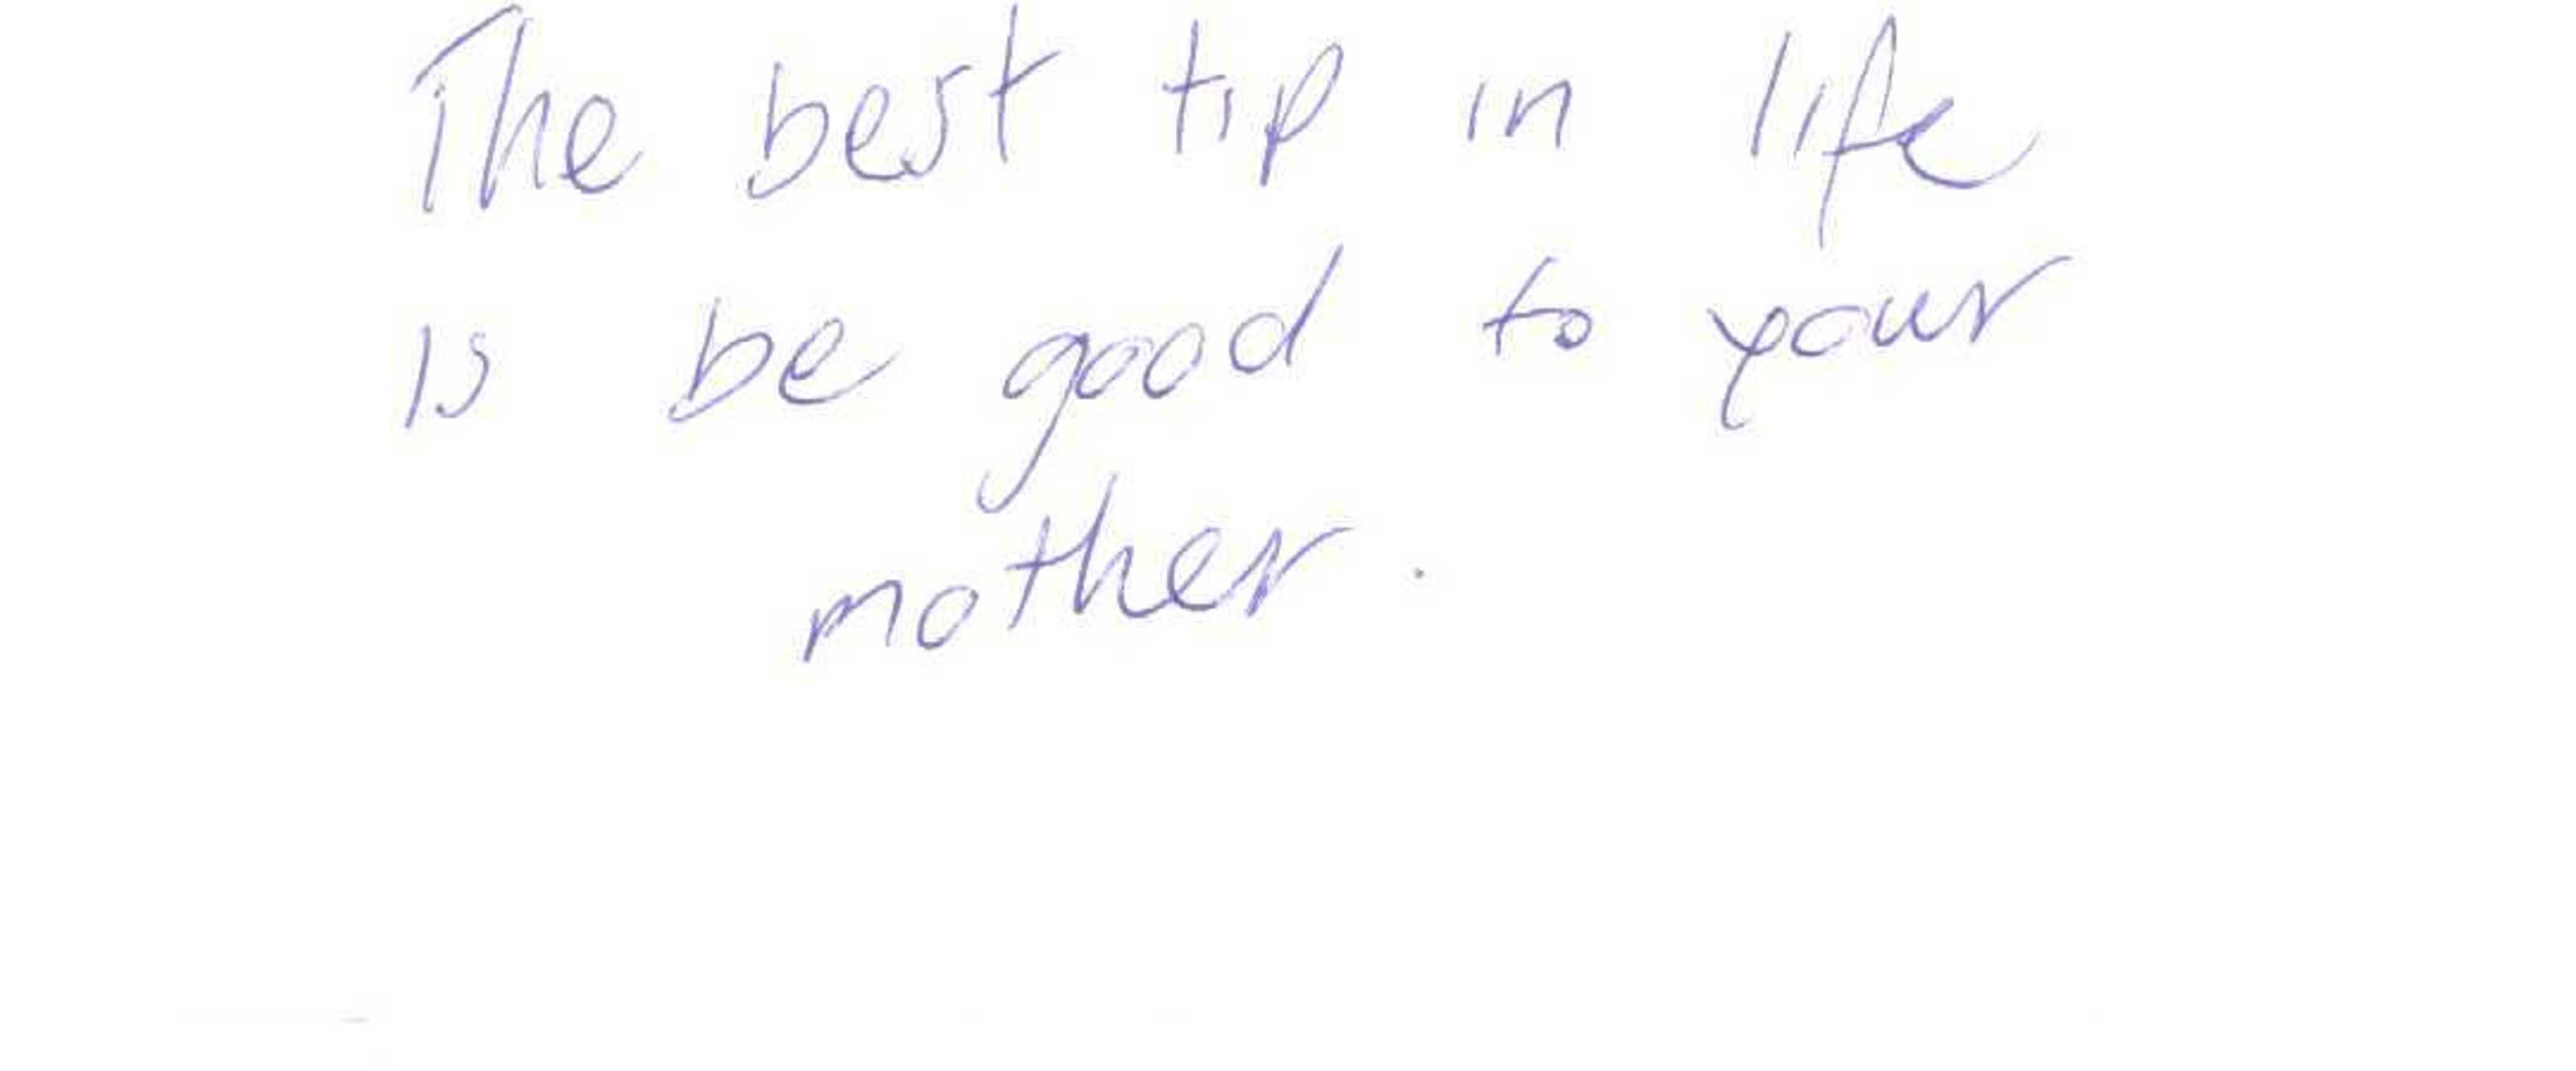 The best tip in life
is be good to your
mother.